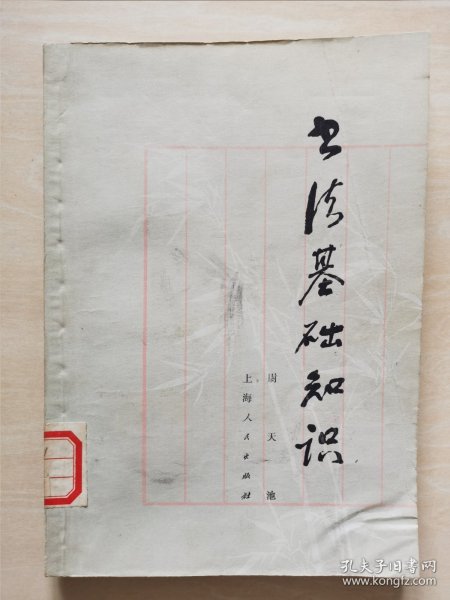 书法基础知识
周天池
上海人民出版社
孔夫子旧书网
www.kongfz.com